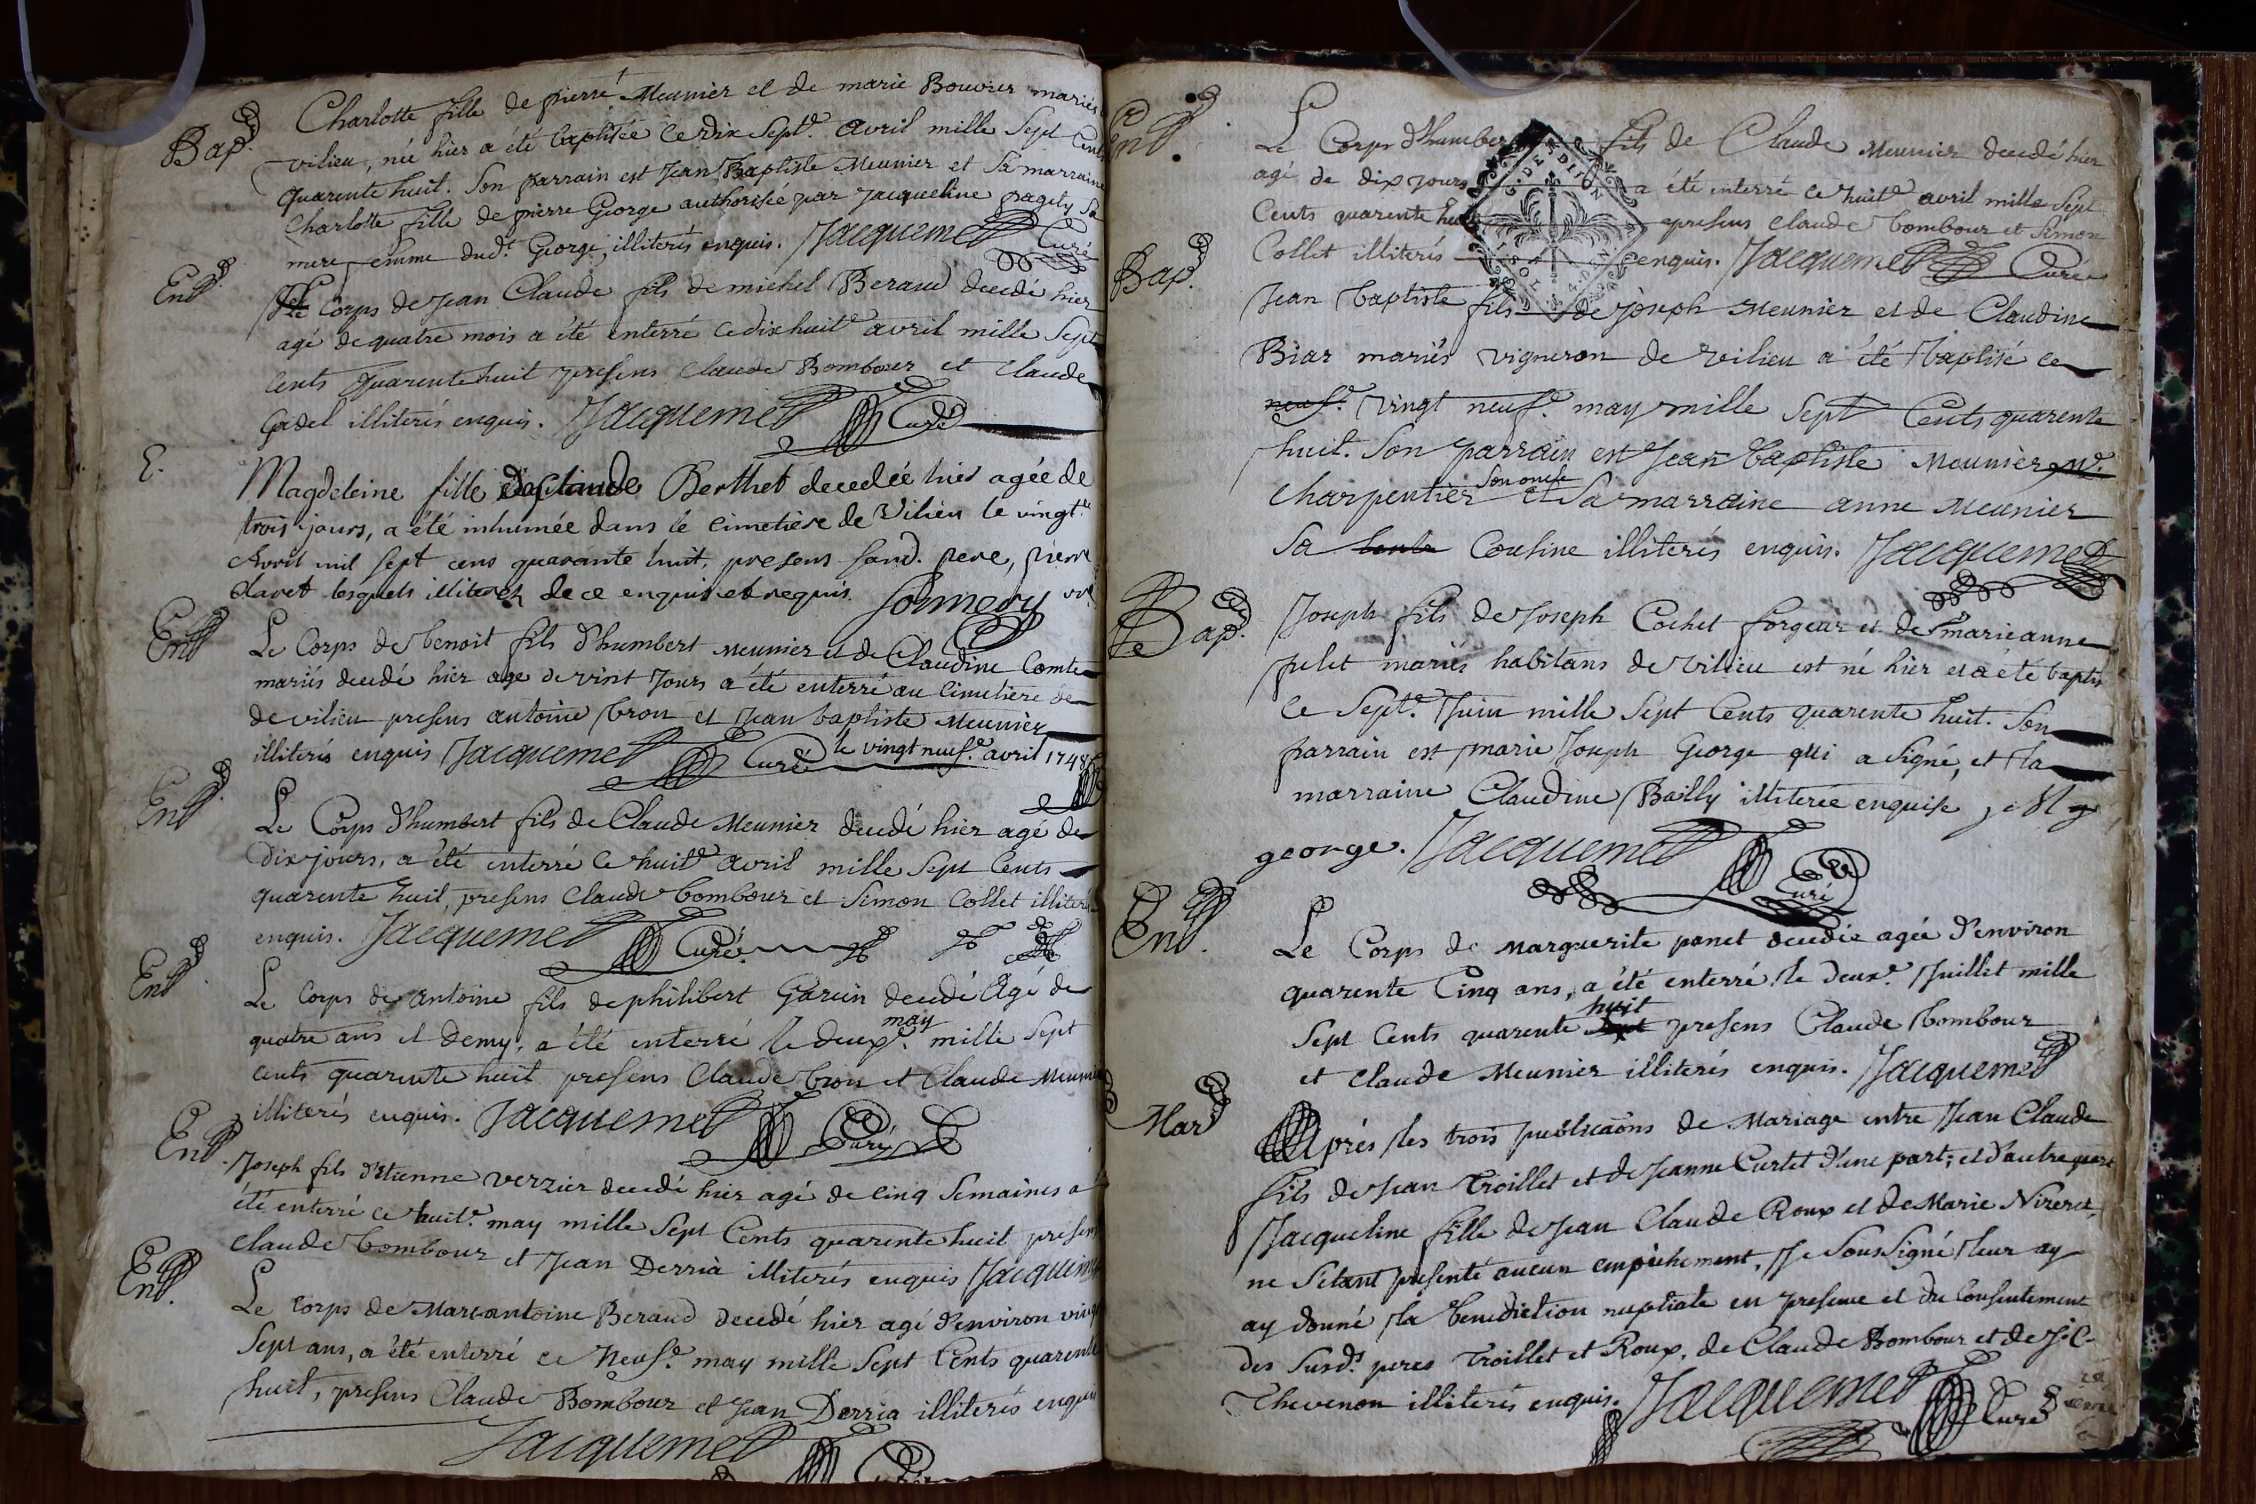 Bap.
Charlotte fille de pierre Meunier et de marie Bouvier mariés
vilieu, née hier a été baptisée ce dix sept.e avril mille sept Cents
quarente huit. Son parrain est Jean Baptiste Meunier et Sa marraine
Charlotte fille de pierre George authorisée par Jacqueline pagely Sa
mere femme dud.t George, illiterés enquis. Jacquemet Curé
Ent.
Le Corps de Jean Claude fils de michel Beraud decedé hier
agé de quatre mois a été enterré ce dixhuit.e avril mille Sept
Cents quarente huit presens Claude Bombour et Claude
Gadel illiterés enquis. Jacquemet Curé
E.
Magdeleine fille de Claude Berthet decedée hier agée de
trois jours, a été inhumée dans le cimetière de Vilieu le vingt.e
Avril mil sept cens quarante huit, presens Sand. pere, pierre
Clavet lesquels illiterés de ce enquis et requis. Sonnery
Ent.
Le Corps de benoit fils d'humbert Meunier et de Claudine Comte
mariés decedé hier age de vint Jours a été enterré au Cimetière de
de vilieu presens antoine bron et Jean baptiste Meunier
illiterés enquis Jacquemet Curé le vingt neuf.e avril 1748
Ent.
Le Corps d'humbert fils de Claude Meunier decedé hier agé de
Dix jours, a été enterré Ce huit.e avril mille Sept Cents
quarente huit, presens Claude bombour et Simon Collet illiterés
enquis. Jacquemet Curé.
Ent.
Le Corps de antoine fils de philibert Garcin decedé Agé de
quatre ans et Demy, a été enterré le deux.e may mille Sept
cents quarente huit presens Claude bron et Claude Meunier
illiterés enquis. Jacquemet Curé
Ent.
Joseph fils d'Etienne verzier decedé hier agé de Cinq Semaines a
été enterré ce huit.e may mille Sept Cents quarente huit presens
Claude bombour et Jean Derria illiterés enquis Jacquemet
Ent.
Le Corps de Marcantoine Beraud decedé hier agé d'environ vingt
Sept ans, a été enterré ce Neuf.e may mille Sept Cents quarente
huit, presens Claude Bombour et Jean Derria illiterés enquis
Jacquemet Curé
Ent.
Le Corps d'humbert fils de Claude Meunier decedé hier
agé de dix Jours a été enterré ce huit.e avril mille Sept
Cents quarente huit presens Claude bombour et Simon
Collet illiterés enquis. Jacquemet Curé
G. DE DIJON
Bap.
Jean baptiste fils de Joseph Meunier et de Claudine
Biar mariés vigneron de vilieu a été baptisé ce
neuf.e vingt neuf.e may mille Sept Cents quarente
huit. Son parrain est Jean baptiste Meunier
Charpentier son oncle et Sa marraine anne Meunier
Sa tante Cousine illiterés enquis. Jacquemet
Bap.
Joseph fils de Joseph Cochet forgeur et de marie anne
pelet mariés habitans de vilieu est né hier et a été baptis
Ce Sept.e Juin mille Sept Cents quarente huit. Son
parrain est marie Joseph George qui a Signé, et la
marraine Claudine Bailly illiterée enquise
george. Jacquemet Curé
Ent.
Le Corps de Marguerite panet decedée agée d'environ
quarente Cinq ans, a été enterré le deux.e Juillet mille
Sept Cents quarente huit presens Claude bombour
et Claude Meunier illiterés enquis. Jacquemet
Mar
Après les trois publicaõns de Mariage entre Jean Claude
fils de Jean Troillet et de Jeanne Curtet d'une part; et d'autre part
Jacqueline fille de Jean Claude Roux et de Marie Nizeret,
ne S'étant presenté aucun empêchement, Je Sous Signé leur ay
ay donné la benediction nuptiale en presence et du Consentement
des Susd.s peres Troillet et Roux, de Claude Bombour et de J. C.
Thevenon illiterés enquis. Jacquemet Curé